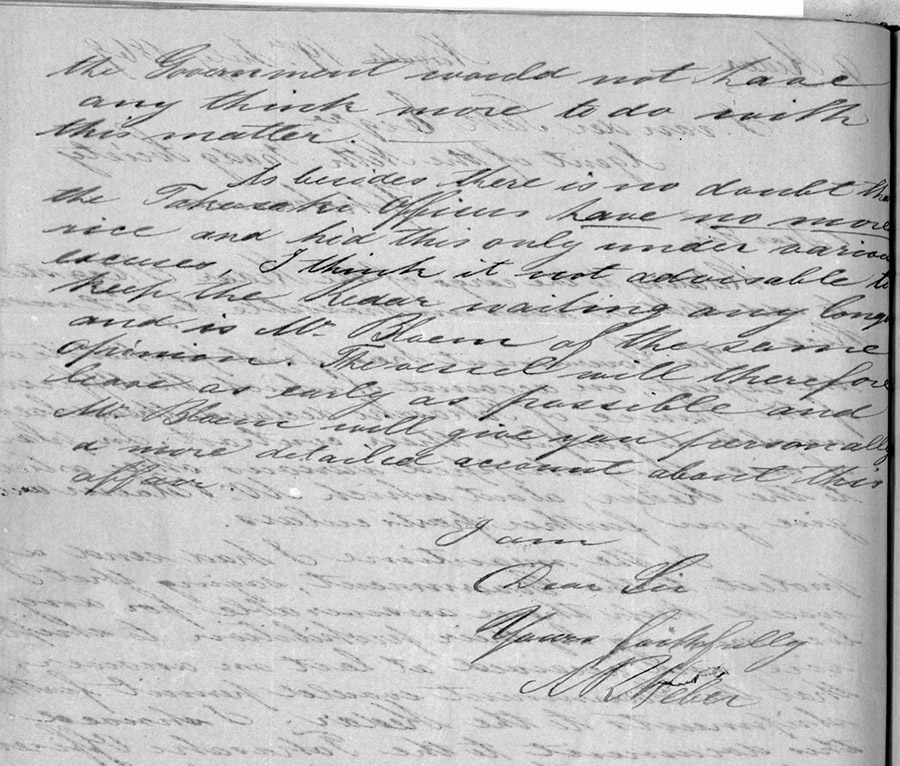 the Government would not have
any think more to do with
this matter.
As besides there is no doubt the
the Takasaki Officers have no more
rice and hid this only under variou
excuses, I think it not advisable to
keep the Kedar waiting any long
and is Mr. Blaem of the same
opinion. The vessel will therefore
leave as early as possible and
Mr. Blaem will give you personally
a more detailed account about this
affair.
I am
Dear Sir
Yours faithfully
Weber